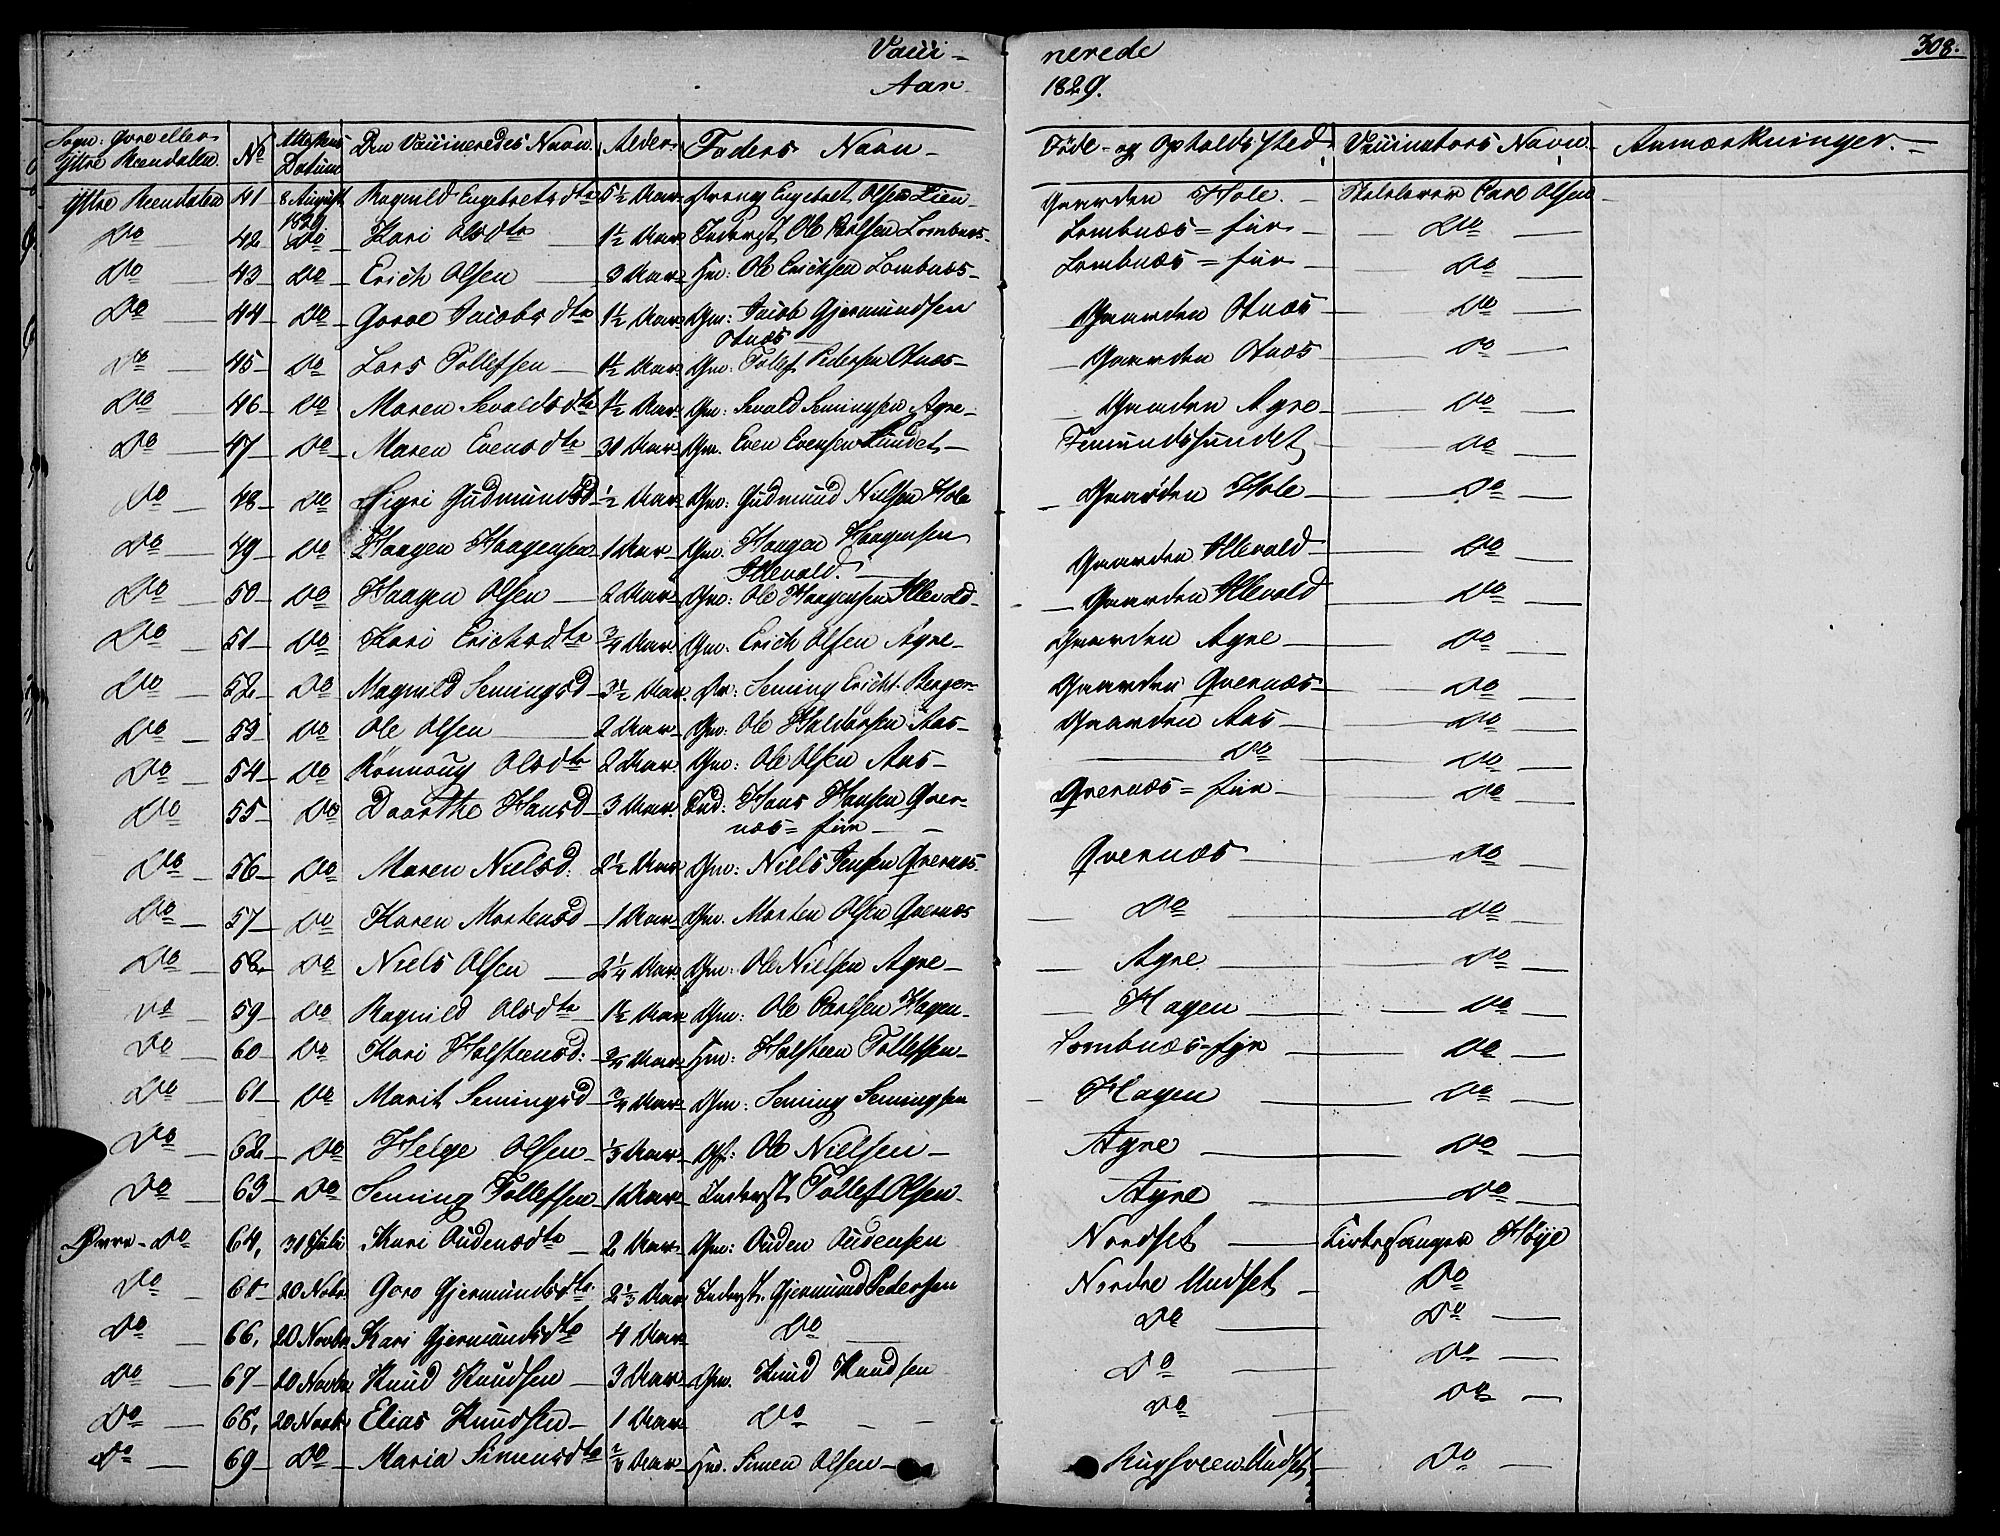 Vacci- nerede 308.
Aar 1829.
Sogn: Øvre eller Ytre Reendalen. No Attestens Datum Den Vaccineredes Navn Alder Faders Navn Føde- og Opholds Sted Vaccinators Navn Anmærkninger.
Ytre Reendalen 41 8 August 1829 Ragnild Engebretsdtr 5½ Aar Dreng Engebret Olsen Lien Gaarden Hole Skolelærer Carl Olsen
Do 42 Do Kari Olsdtr 1½ Aar Inderst Ole Paalsen Lombnæs Lombnæs=fur Do
Do 43 Do Erich Olsen 3 Aar Hm: Ole Ericksen Lombnæs Lombnæs=fur Do
Do 44 Do Goroe Jacobsdtr 1½ Aar Gm: Jacob Gjermundsen Otnæs Gaarden Otnæs Do
Do 45 Do Lars Tollefsen 1½ Aar Gm: Tollef Pedersen Otnæs Gaarden Otnæs Do
Do 46 Do Maren Sevaldsdtr 1½ Aar Gm: Sevald Semingsen Agre Gaarden Agre Do
Do 47 Do Maren Evensdtr 30 Aar Gm. Even Evensen Sundet Femundssundet Do
Do 48 Do Sigri Gudmundsd ½ Aar Gm: Gudmund Nielsen Hole Gaarden Hole Do
Do 49 Do Haagen Haagensen 1 Aar Gm. Haagen Haagensen Illevold. Gaarden Illevold Do
Do 50 Do Haagen Olsen 2 Aar Gm: Ole Haagensen Illevold Gaarden Illevold Do
Do 51 Do Kari Erichsdtr ¾ Aar. Gm: Erich Olsen Agre Gaarden Agre Do
Do 52 Do Magnild Semingsd 3½ Aar. Dr: Seming Erichs. Berger Gaarden Qvernæs Do
Do 53 Do Ole Olsen 2 Aar Gm: Ole Haldorsen Aas Gaarden Aas Do
Do 54 Do Rönnoug Olsdtr 2 Aar. Gm: Ole Olsen Aas Do Do
Do 55 Do Doorthe Hansd 3 Aar. Ind: Hans Hansen Qvernæs=fur Qvernæs=fur Do
Do 56 Do Maren Nielsd: 2½ Aar Gm: Niels Jensen Qvernæs Qvernæs Do
Do 57 Do Karen Mortensd 1 Aar Gm. Morten Olsen Qvernæs Do Do
Do 58 Do Niels Olsen 2¼ Aar Gm: Ole Nielsen Agre Agre Do
Do 59 Do Ragnild Olsdtr 1½ Aar Gm: Ole Paalsen Hagen Hagen Do
Do 60 Do Kari Halsteensd: ¾ Aar Hm: Halsteen Tollefsen Lombnæs=fyr Do
Do 61 Do Marit Semingsd ¾ Aar Gm: Seming Semingsen Hagen Do
Do 62 Do Helge Olsen ⅓ Aar Gf: Ole Nielsen Agre Do
Do 63 Do Seming Tollefsen 1 Aar Inderst Tollef Olsen Agre Do
Øvre - Do 64. 31 Juli Kari Oudensdtr 2 Aar Gm: Ouden Oudensen Nordset Kirkesanger Høye
Do 65 20 Novbr. Goro Gjermundsdtr 2⅓ Aar Inderst. Gjermund Pedersen Nordre Undset Do
Do 66. 20 Novbr Kari Gjermundsdtr 4 Aar Do Do Do
Do 67 20 Novbr Knud Knudsen 3 Aar Gm. Knud Knudsen Do Do
Do 68. 20 Novbr Elias Knudsen 1 Aar Do Do Do
Do 69 Do Maria Simensdtr Aar Hm. Simen Olsen Rugsveen Undset Do